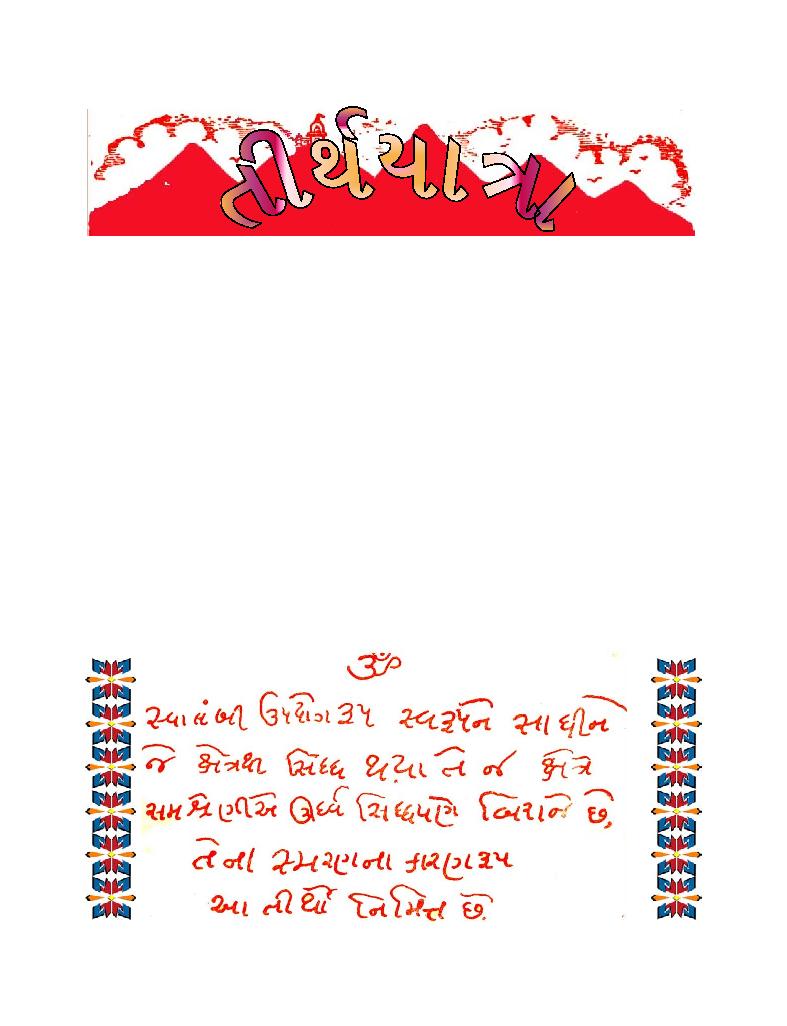 તીર્થયાત્રા
ૐ
સ્વાલંબી ઉપયોગરૂપ સ્વરૂપને સાધીને
જે ક્ષેત્રથી સિધ્ધ થયા તે જ ક્ષેત્રે
સમશ્રેણીએ ઊર્ધ્વ સિધ્ધપણે બિરાજે છે,
તેના સ્મરણના કારણરૂપ
આ તીર્થો નિમિત્ત છે.